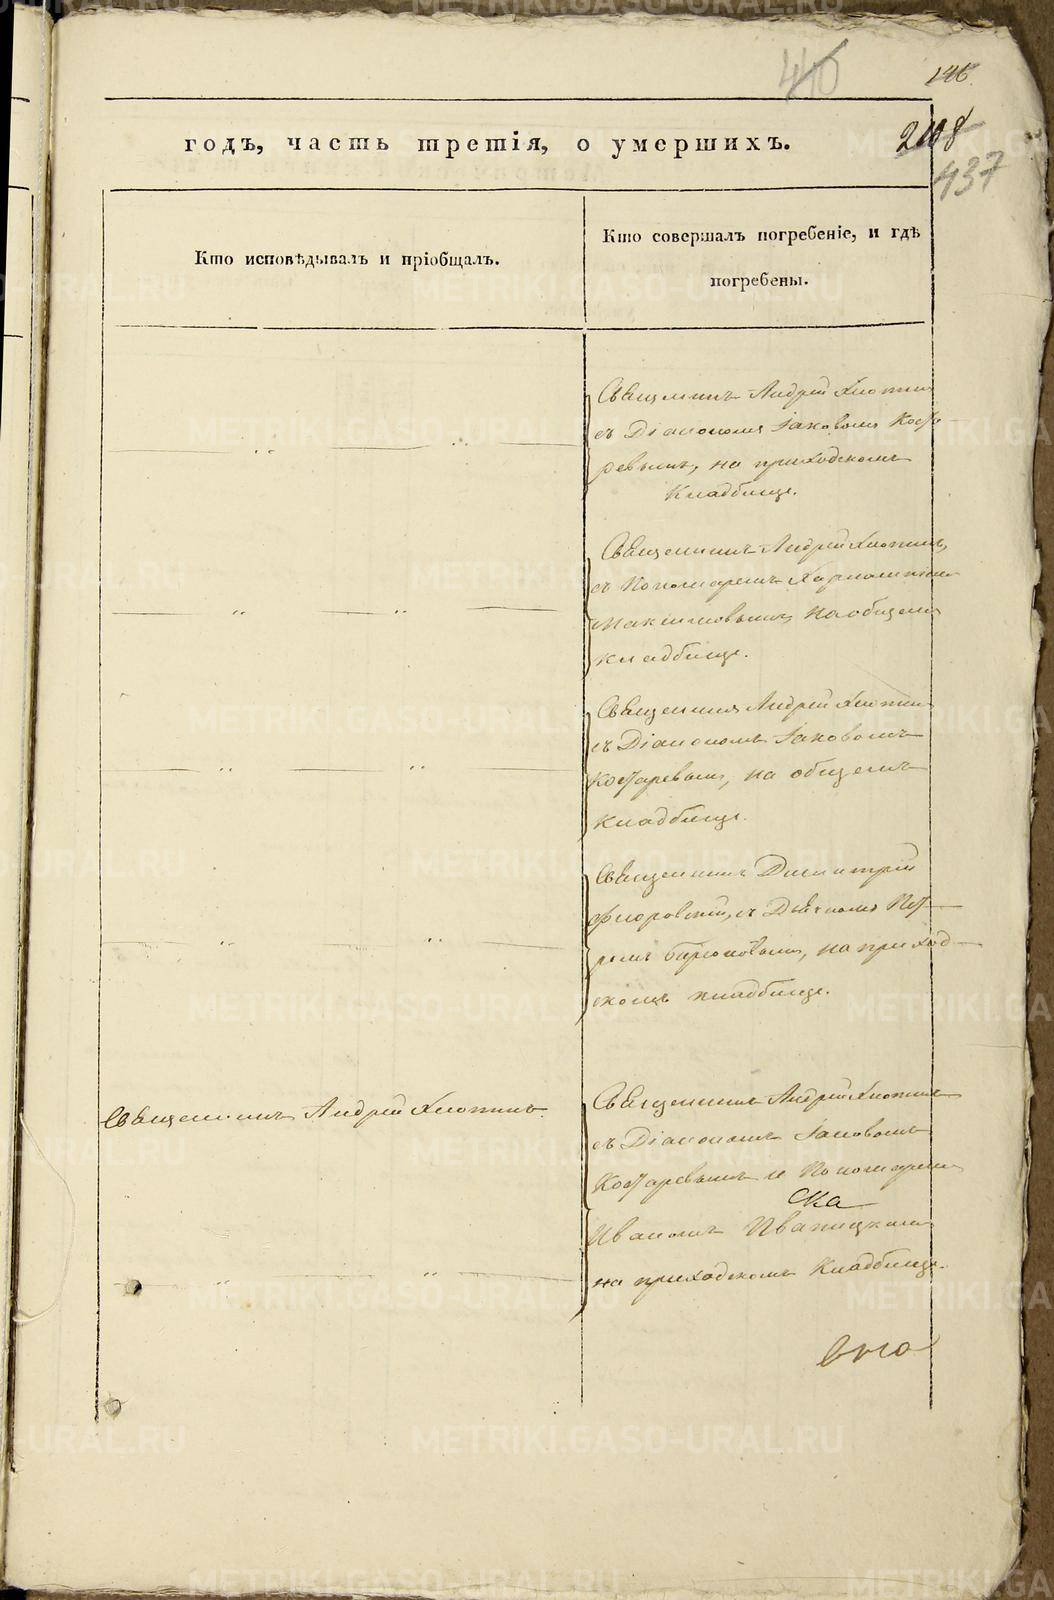 440
146
годъ, часть третія, о умершихъ.
208
437
Кто исповѣдывалъ и пріобщалъ.
Кто совершалъ погребеніе, и гдѣ
погребены.
Священникъ Андрей Хлопинъ
съ Діакономъ Іаковомъ Коста
ревымъ, на приходскомъ
Кладбище.
Священникъ Андрей Хлопинъ,
съ Пономаремъ
Максимовымъ на общемъ
кладбище.
Священникъ Андрей Хлопинъ
съ Діакономъ Іаковомъ
Костаревымъ, на общемъ
Кладбище.
Священникъ Димитрій
Флоровскій, съ Дьячкомъ Пет-
ромъ Бирюковымъ, на приход-
скомъ кладбище.
Священникъ Андрей Хлопинъ
Священникъ Андрей Хлопинъ
съ Діакономъ Іаковомъ
Костаревымъ и Пономаремъ
Иваномъ Иваницкимъ
на приходскомъ Кладбище.
METRIKI.GASO-URAL.RU